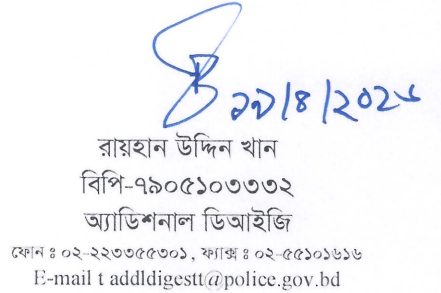 ১৯/৪/২০২৬
রায়হান উদ্দিন খান
বিপি-৭৯০৫১০৩৩৩২
অ্যাডিশনাল ডিআইজি
ফোন ঃ ০২-২২৩৩৫৫৩০১, ফ্যাক্স ঃ ০২-৫৫১০১৬১৬
E-mail t addldigestt@police.gov.bd